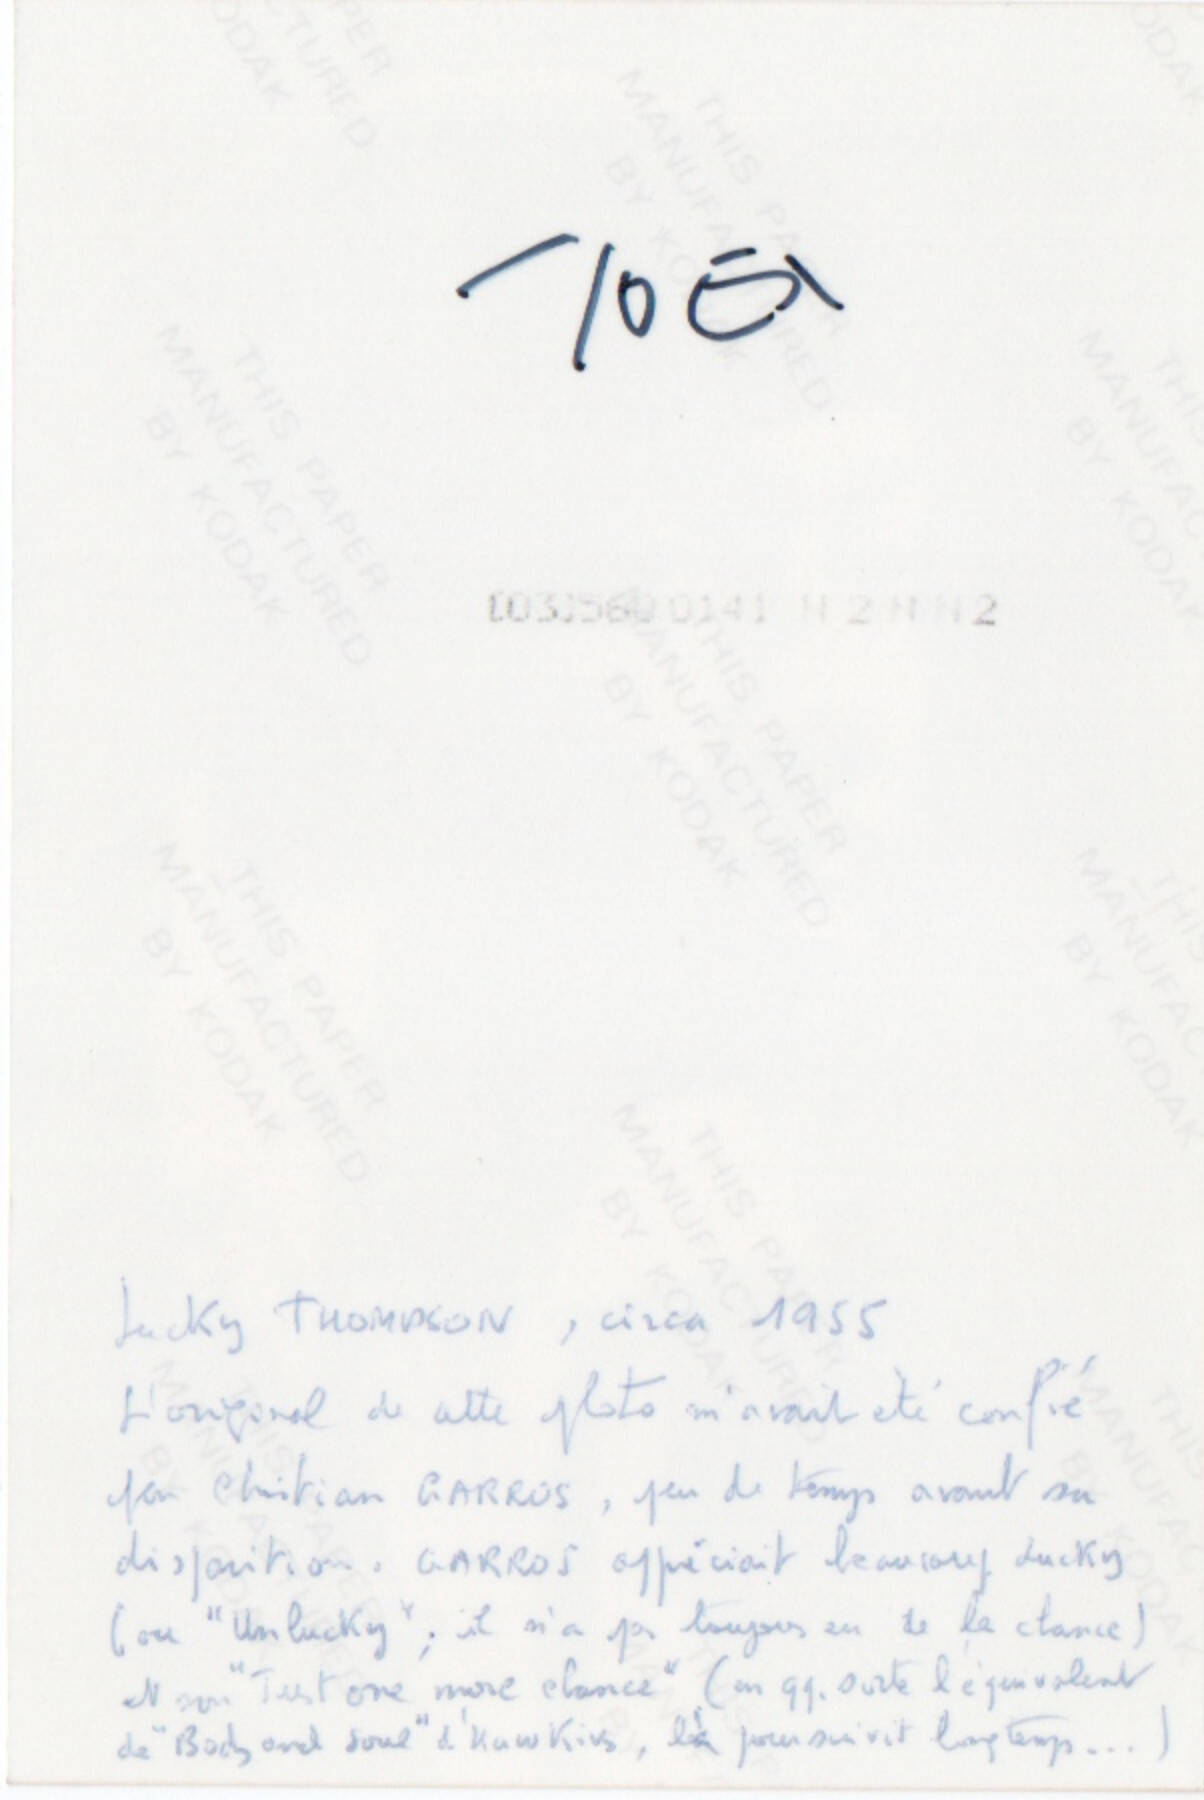 THIS PAPER
MANUFACTURED
BY KODAK
0141
Lucky THOMPSON, circa 1955
L'original de cette photo m'avait été confié
par Christian GARROS, peu de temps avant sa
disparition. GARROS appréciait beaucoup Lucky
(ou "Unlucky"; il n'a pas toujours eu de la chance)
et son "Just one more chance" (en qq. sorte l'équivalent
de "Body and Soul" d'Hawkins, le poursuivit longtemps...)